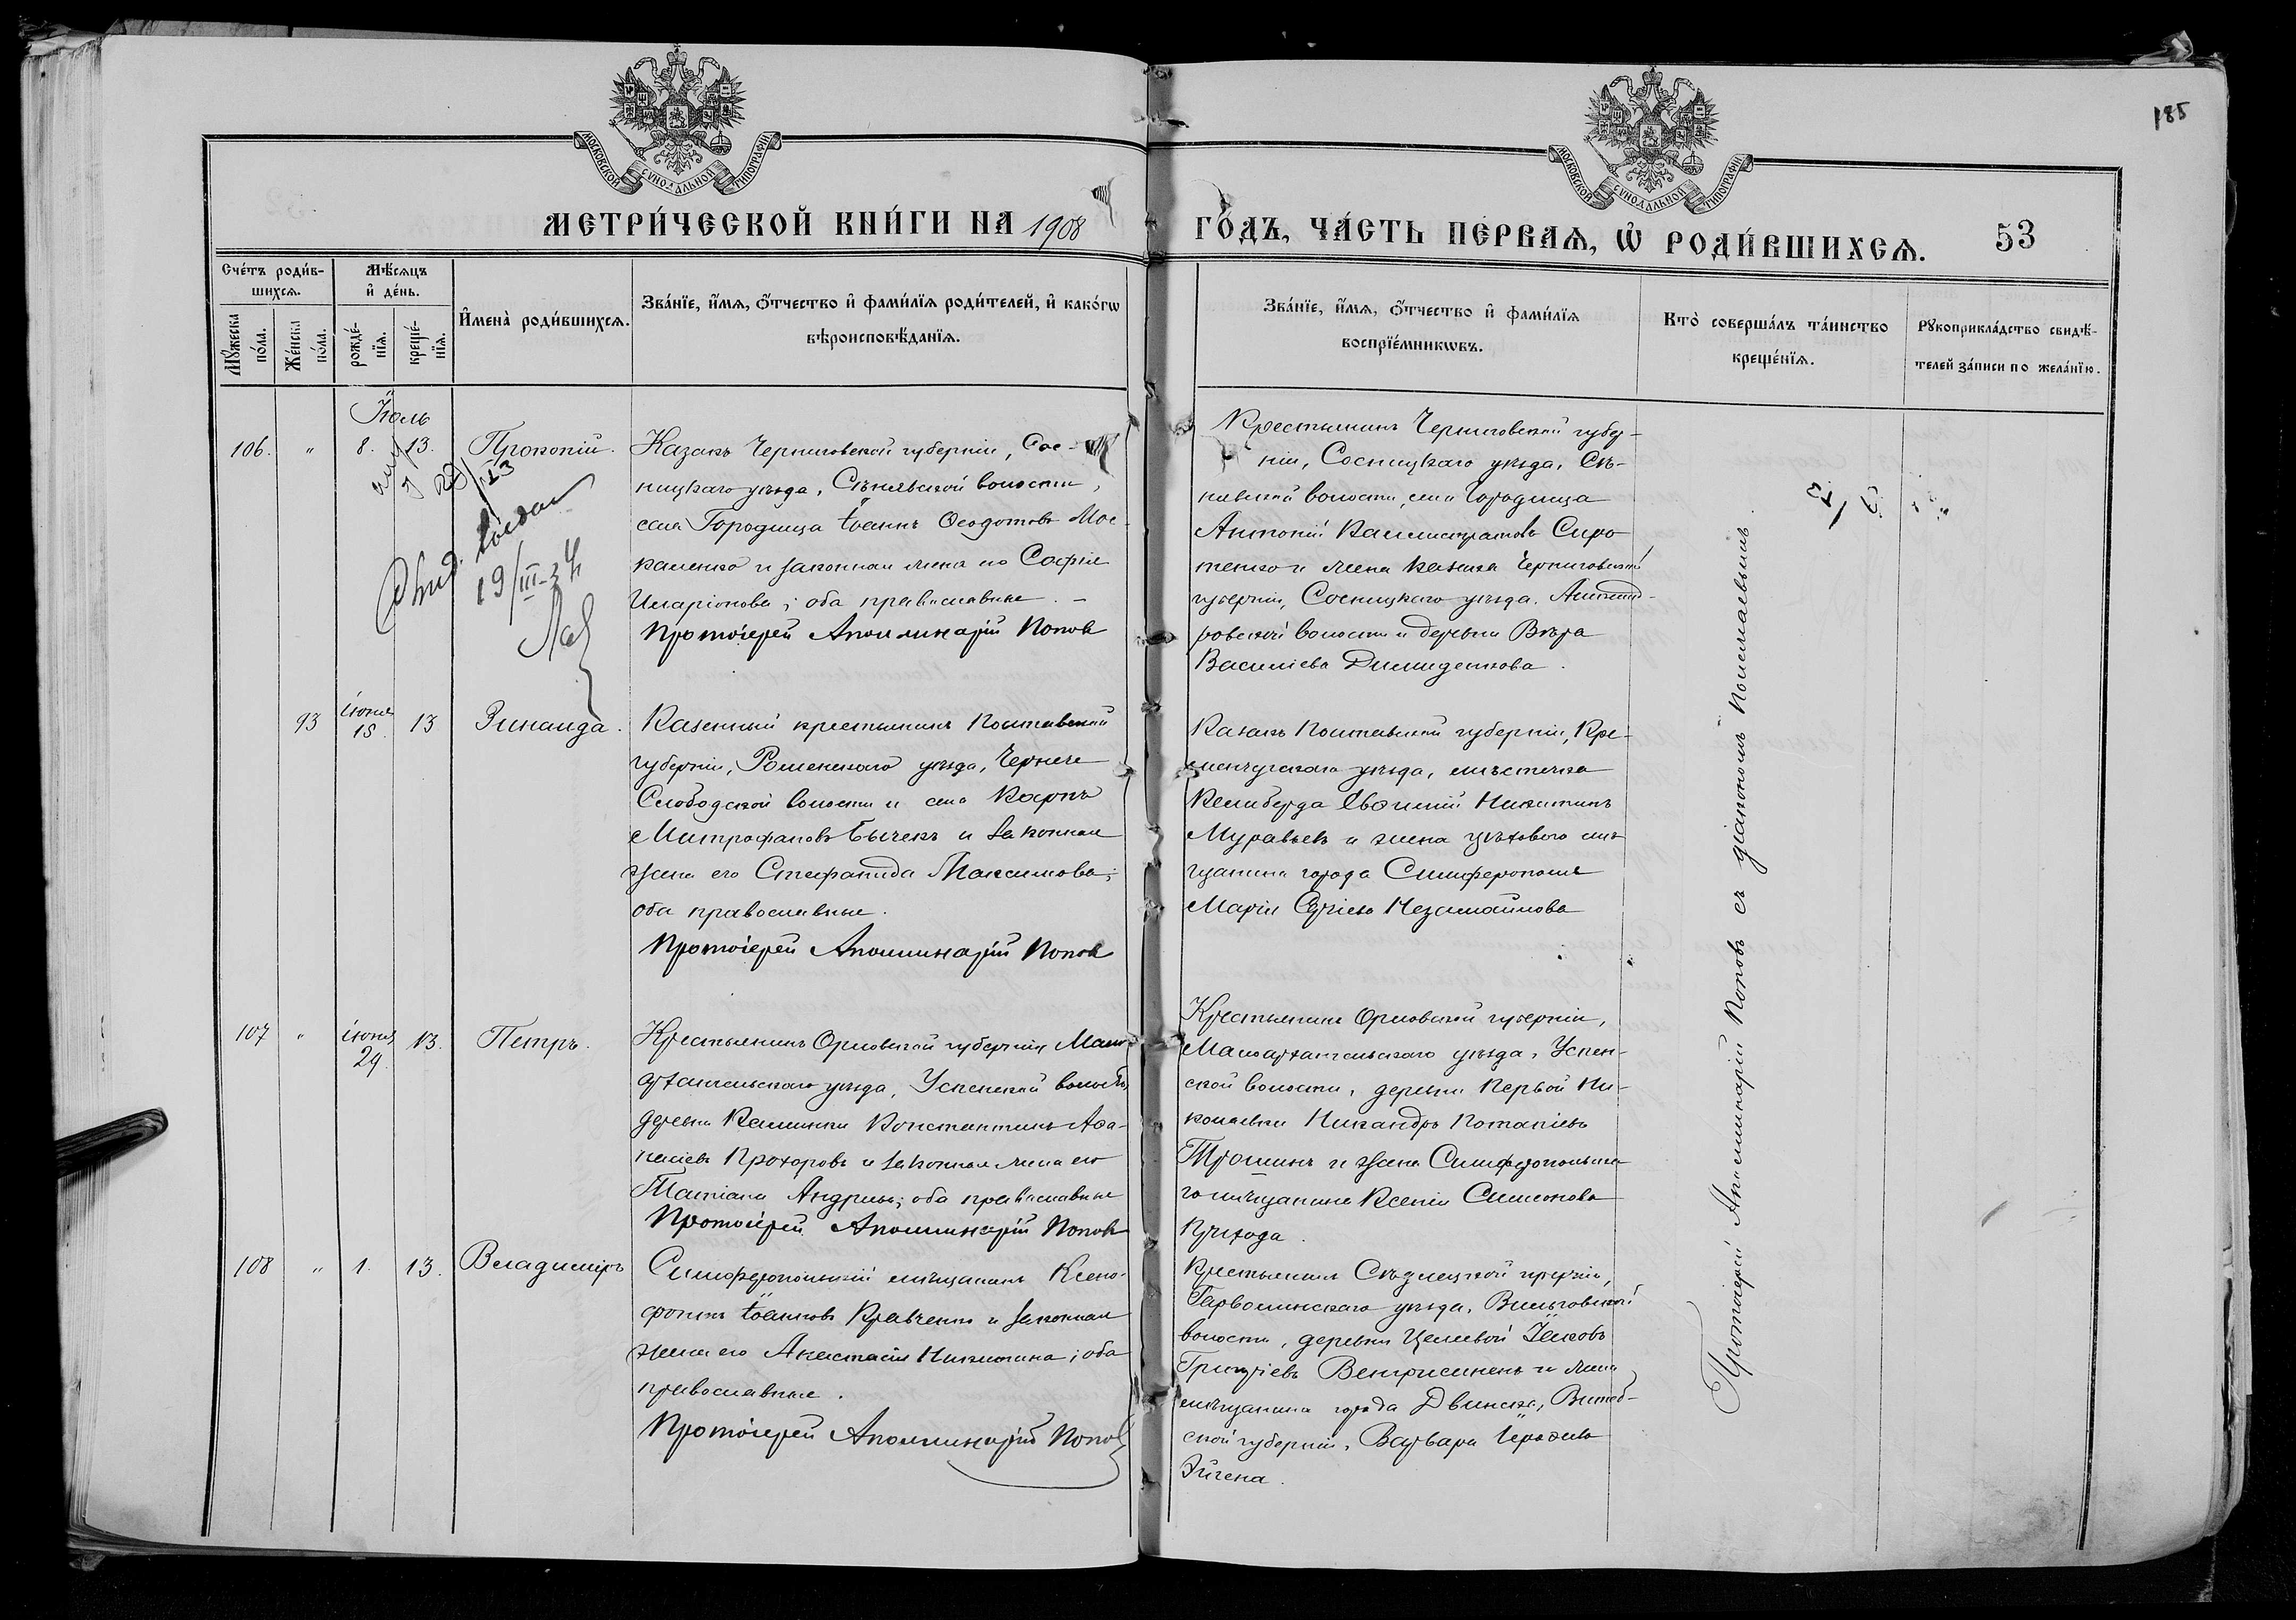 185
МОСКОВСКОЙ СѴНОДАЛЬНОЙ ТИПОГРАФІИ
МОСКОВСКОЙ СѴНОДАЛЬНОЙ ТИПОГРАФІИ
МЕТРИ́ЧЕСКОЙ КНИ́ГИ НА 1908
ГО́ДЪ, ЧА́СТЬ ПЕ́РВАѦ, Ѽ РОДИ́ВШИХСѦ. 53
Сче́тъ роди́в-
шихсѧ.
Мꙋ́жеска по́ла.
Же́нска по́ла.
Мѣ́сѧцъ
и҆ де́нь.
рожде́-
нїѧ.
креще́-
нїѧ.
И҆мена̀ роди́вшихсѧ.
Зва́нїе, и҆́мѧ, ѻ҆́тчество и҆ фами́лїѧ роди́телей, и҆ како́гѡ
вѣроисповѣ́данїѧ.
Зва́нїе, и҆́мѧ, ѻ҆́тчество и҆ фами́лїѧ
воспрїе́мникѡвъ.
Кто̀ соверша́лъ та́инство
креще́нїѧ.
Рꙋкоприкла́дство свидѣ́-
телей за́писи по жела́нїю.
Іюль
106. " 8. 13. Прокопій.
19/III-34
Казакъ Черниговской губерніи, Сос-
ницкаго уѣзда, Сѣнявской волости,
села Городища Іоаннъ Ѳеодотовъ Мос-
каленко и законная жена его Софія
Иларіонова; оба православные. –
Протоіерей Аполлинарій Поповъ
Крестьянинъ Черниговской губер-
ніи, Сосницкаго уѣзда, Сѣ-
нявской волости, села Городища
Антоній Каллистратовъ Сиро-
тенко и жена казака Черниговской
губерніи, Сосницкаго уѣзда,
волости и деревни Вѣра
Василіева Димиденкова.
93 іюня 15. 13 Зинаида.
Казенный крестьянинъ Полтавской
губерніи, Роменскаго уѣзда, Чернече
Слободской волости и села Карпъ
Митрофановъ Бычекъ и законная
жена его Стефанида Максимова;
оба православные.
Протоіерей Аполлинарій Поповъ
Казакъ Полтавской губерніи, Кре-
менчугскаго уѣзда, мѣстечка
Келеберда Евѳимій Никитинъ
Муравьевъ и жена цѣховаго мѣ-
щанина города Симферополя
Марія Сергіева Незамайнова
107 " іюня 29. 13. Петръ.
Крестьянинъ Орловской губерніи Мало-
архангельскаго уѣзда, Успенской волости,
деревни Калинки Константинъ Аѳа-
насіевъ Прохоровъ и законная жена его
Татіана Андреева; оба православные
Протоіерей Аполлинарій Поповъ
Крестьянинъ Орловской губерніи,
Малоархангельскаго уѣзда, Успен-
ской волости, деревни Первой Ни-
колаевки Никандръ Потапіевъ
Трошинъ и жена Симферопольска-
го мѣщанина Ксенія Симеонова
Прихода.
108 " 1. 13. Владиміръ
Симферопольскій мѣщанинъ Ксено-
фонтъ Іоанновъ Кравченко и законная
жена его Анастасія Никитина; оба
православные.
Протоіерей Аполлинарій Поповъ
Крестьянинъ Сѣдлецкой губерніи,
Гарволинскаго уѣзда,
волости, деревни Іаковъ
Григоріевъ и жена
мѣщанина города Двинска, Витеб-
ской губерніи, Варвара
Протоіерей Аполлинарій Поповъ съ діакономъ